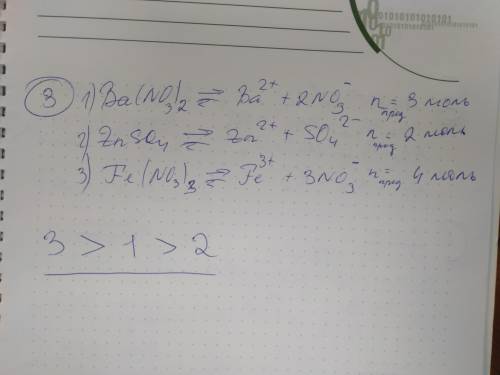 010101010101
3 1) Ba(NO₃)₂ ⇄ Ba²⁺ + 2NO₃⁻ n прод = 3 моль
2) ZnSO₄ ⇄ Zn²⁺ + SO₄²⁻ n прод = 2 моль
3) Fe(NO₃)₃ ⇄ Fe³⁺ + 3NO₃⁻ n прод = 4 моль
3 > 1 > 2